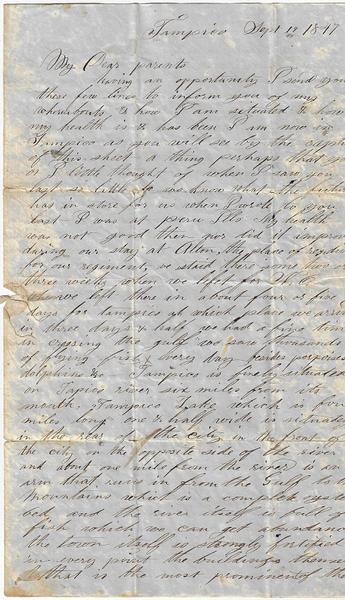 Tampico Sept 12 1847
My Dear parents
having an opportunity I send you
these few lines to inform you of my
whereabouts & how I am situated & how
my health is & has been I am now in
Tampico as you will see by the
of this sheet a thing perhaps that you
or I little thought of when I saw you
last so little do we know what the future
has in store for us when I wrote to you
last I was at peru Ills My health
was not good then nor did it improve
during our stay at Alton, the place of
for our regiment, we staid there some two or
three weeks when we left for
we left there in about four or five
days for tampico at which place we arrived
in three days & half we had a fine time
in crossing the gulf we saw thousands
of flying fish every day besides porpoises
dolphins &c Tampico is finely situated
on Tapico river six miles from its
mouth. Tampico Lake which is four
miles long one & half wide is situated
in the rear of the city in the front of
the city on the opposite side of the river
and about one mile from the river is an
arm that runs in from the Gulf to the
mountains which is a complete oyster
bed and the river itself is full of
fish which we can get abundance
the town itself is strongly fortified
in every point the buildings
what is the most prominent the